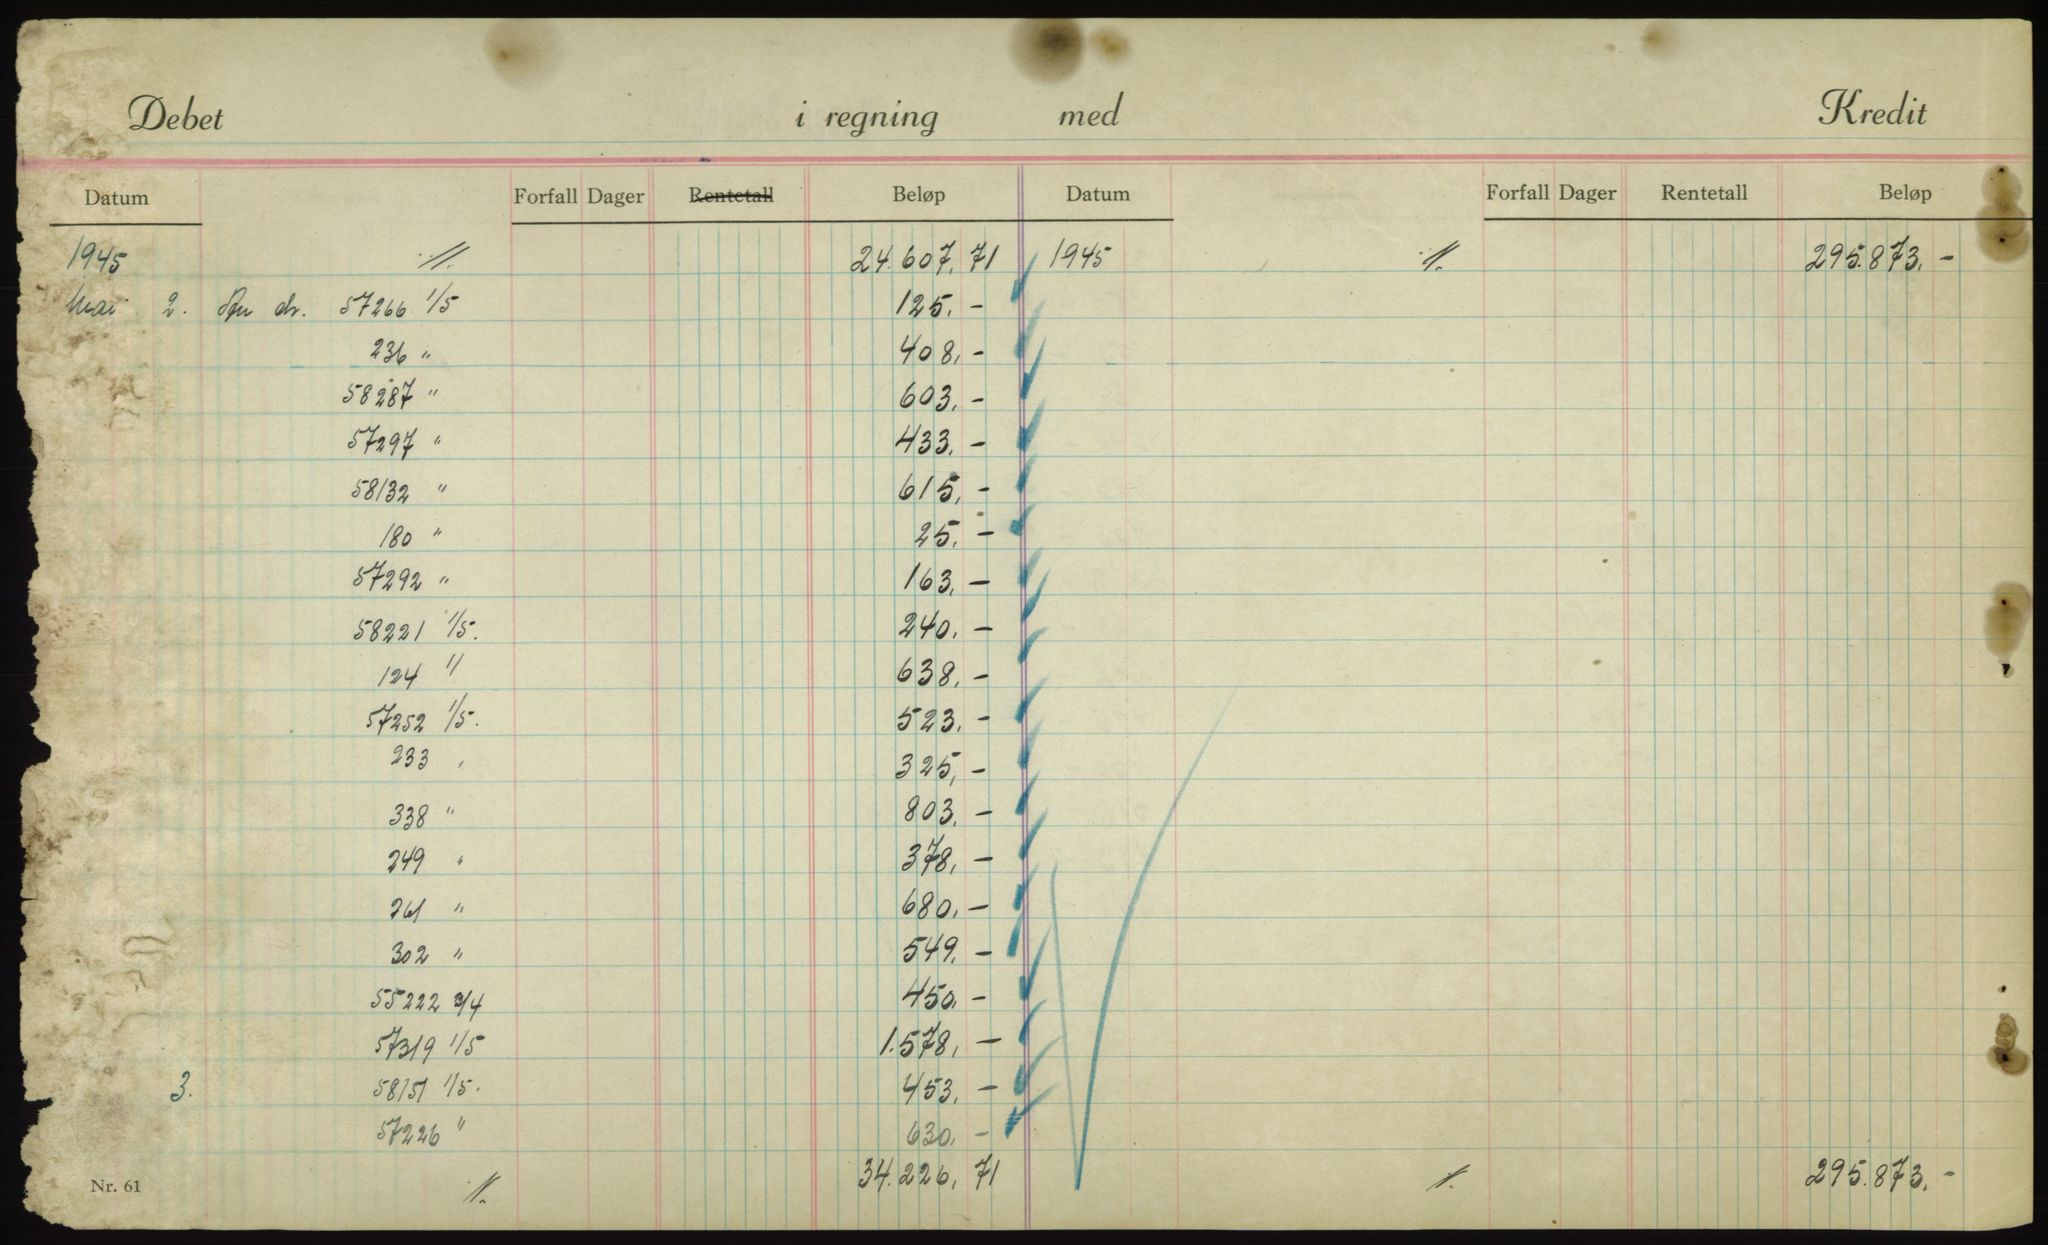 Debet i regning med Kredit
Datum Forfall Dager Rentetall Beløp Datum Forfall Dager Rentetall Beløp
1945 ·/· 24.607,71 1945 ·/· 295.873,-
Mai 2. dr. 57266 1/5 125,-
236 " 408,-
58287 " 603,-
57297 " 433,-
58132 " 615,-
180 " 25,-
57292 " 163,-
58221 1/5. 240,-
124 " 638,-
57252 1/5. 523,-
233 " 325,-
338 " 803,-
249 " 378,-
261 " 680,-
302 " 549,-
55222 3/4 450,-
57319 1/5 1.578,-
3. 58151 1/5. 453,-
57226 " 630,-
Nr. 61 ·/· 34.226,71 ·/· 295.873,-